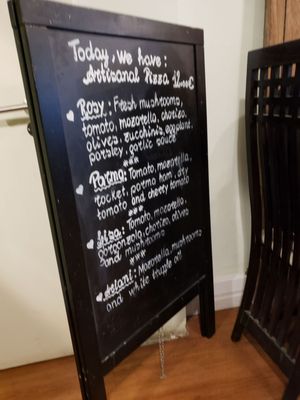 Today, we have:
Artisanal Pizza 12.00€
Rosy: Fresh mushrooms,
tomato, mozarella, chorizo,
olives, zucchinis, eggplant,
parsley, garlic sauce
***
Parma: Tomato, mozarella,
rocket, parma ham, dry
tomato and cherry tomato
***
Tomato, mozarella,
gorgonzola, chorizo, olives
and mushrooms
***
Mozarella, mushrooms
and white truffle oil